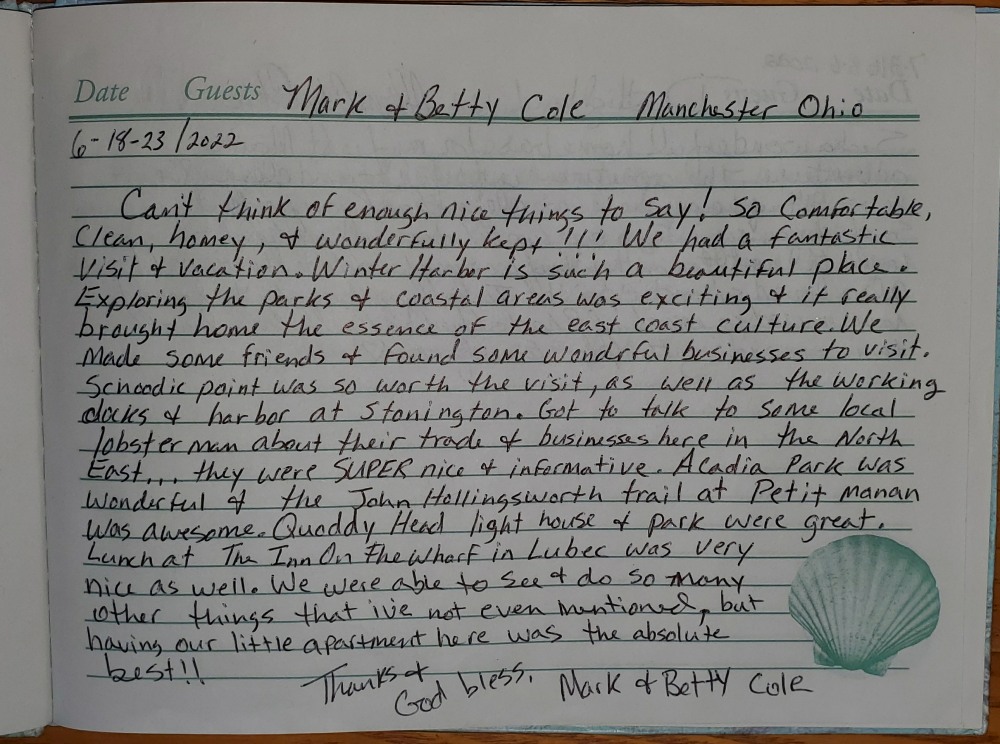 Date Guests Mark & Betty Cole Manchester Ohio
6-18-23/2022
Can't think of enough nice things to say! So Comfortable,
Clean, homey, & wonderfully kept!!! We had a fantastic
Visit & vacation. Winter Harbor is such a beautiful place.
Exploring the parks & coastal areas was exciting & it really
brought home the essence of the east coast culture. We
Made some friends & found some wonderful businesses to visit.
Schoodic point was so worth the visit, as well as the working
docks & harbor at Stonington. Got to talk to some local
lobster man about their trade & businesses here in the North
East... they were SUPER nice & informative. Acadia Park was
Wonderful & the John Hollingsworth trail at Petit manan
was awesome. Quoddy Head light house & park were great.
Lunch at The Inn On the wharf in Lubec was very
nice as well. We were able to see & do so many
other things that i've not even mentioned, but
having our little apartment here was the absolute
best!!
Thanks &
God bless, Mark & Betty Cole